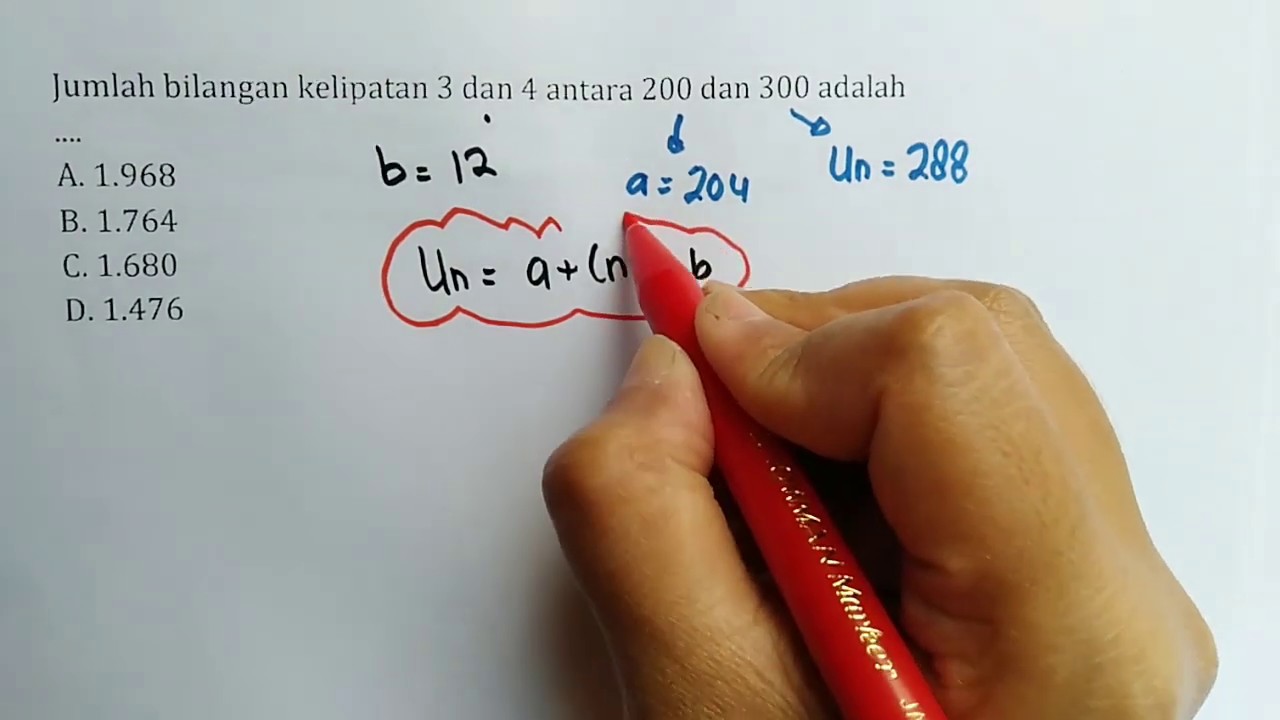 Jumlah bilangan kelipatan 3 dan 4 antara 200 dan 300 adalah
....
A. 1.968
B. 1.764
C. 1.680
D. 1.476
b = 12
a = 204
Un = 288
Un = a + (n b
Marker